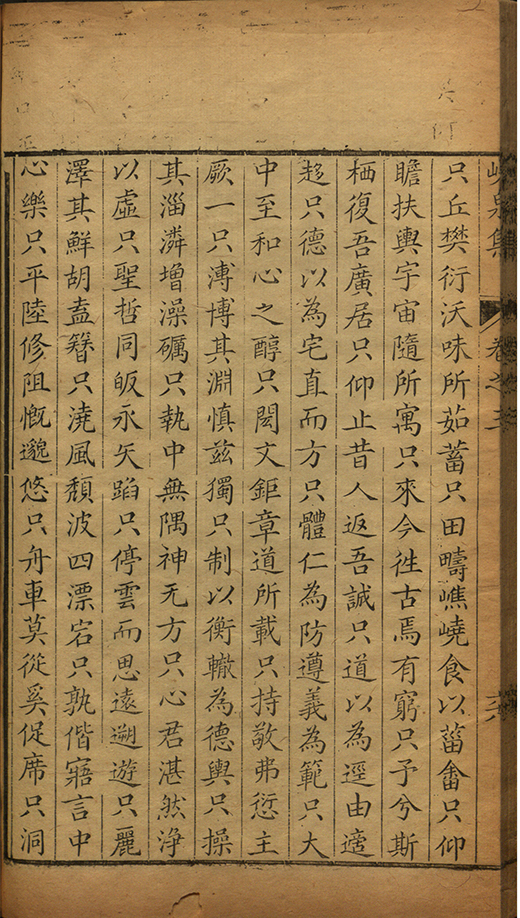 峴泉集 卷之三
只丘樊衍沃味所茹蓄只田疇嶕嶢食以菑畬只仰
瞻扶輿宇宙隨所寓只來今徃古焉有窮只予兮斯
栖復吾廣居只仰止昔人返吾誠只道以為逕由適
趍只德以為宅直而方只體仁為防遵義為範只大
中至和心之醇只閎文鉅章道所載只持敬弗愆主
厥一只溥博其淵慎兹獨只制以衡轍為德輿只操
其淄潾增澡礪只執中無隅神无方只心君湛然浄
以虛只聖哲同皈永矢蹈只停雲而思遠遡遊只麗
澤其鮮胡盍簪只澆風頹波四漂宕只孰偕寤言中
心樂只平陸修阻慨邈悠只舟車莫從奚促席只洞